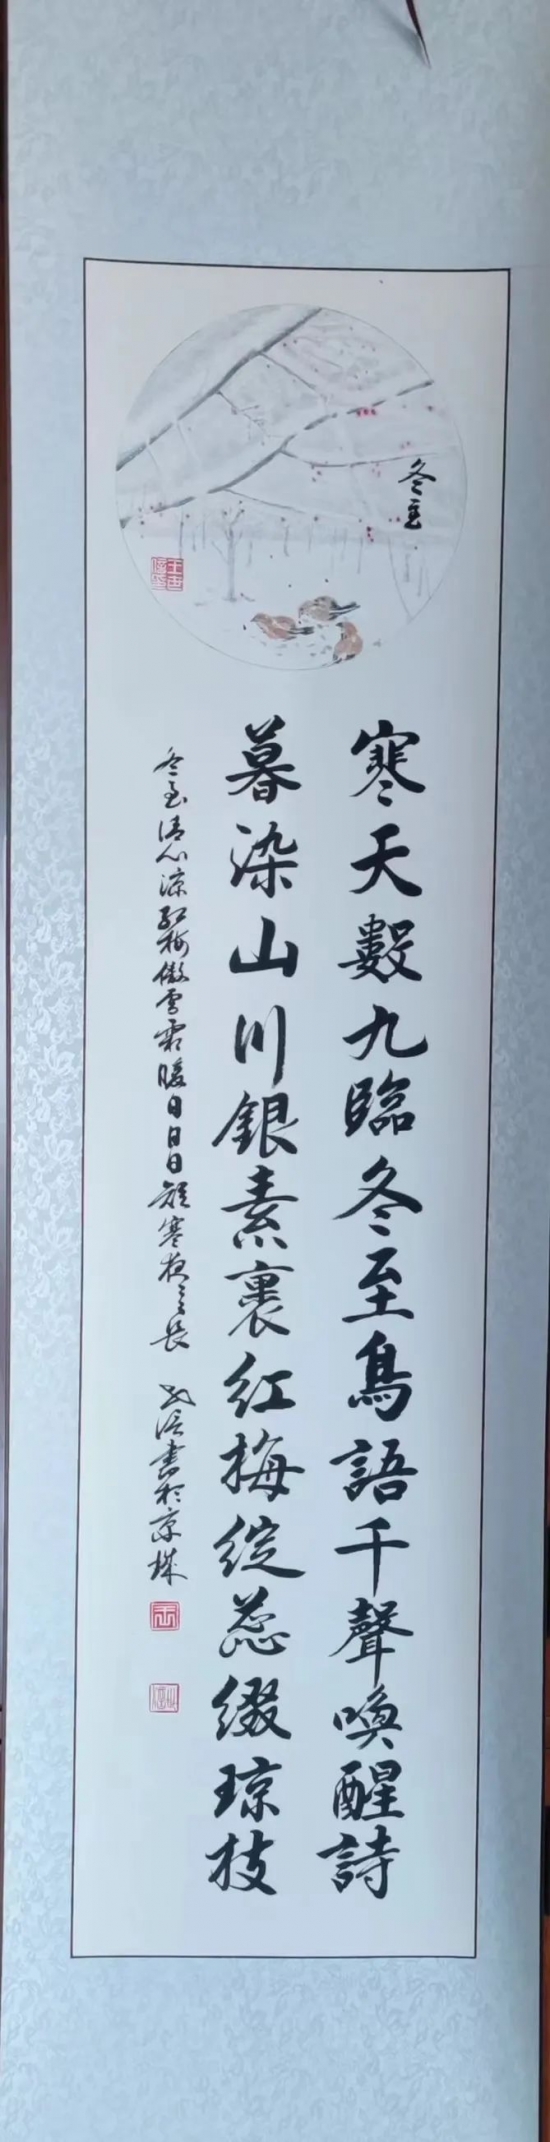 冬至
寒天數九臨冬至鳥語千聲喚醒詩
暮染山川銀素裹紅梅綻蕊綴瓊枝
冬至清心涼紅梅傲雪霜暖日日日短寒夜夜夜長
書於京城